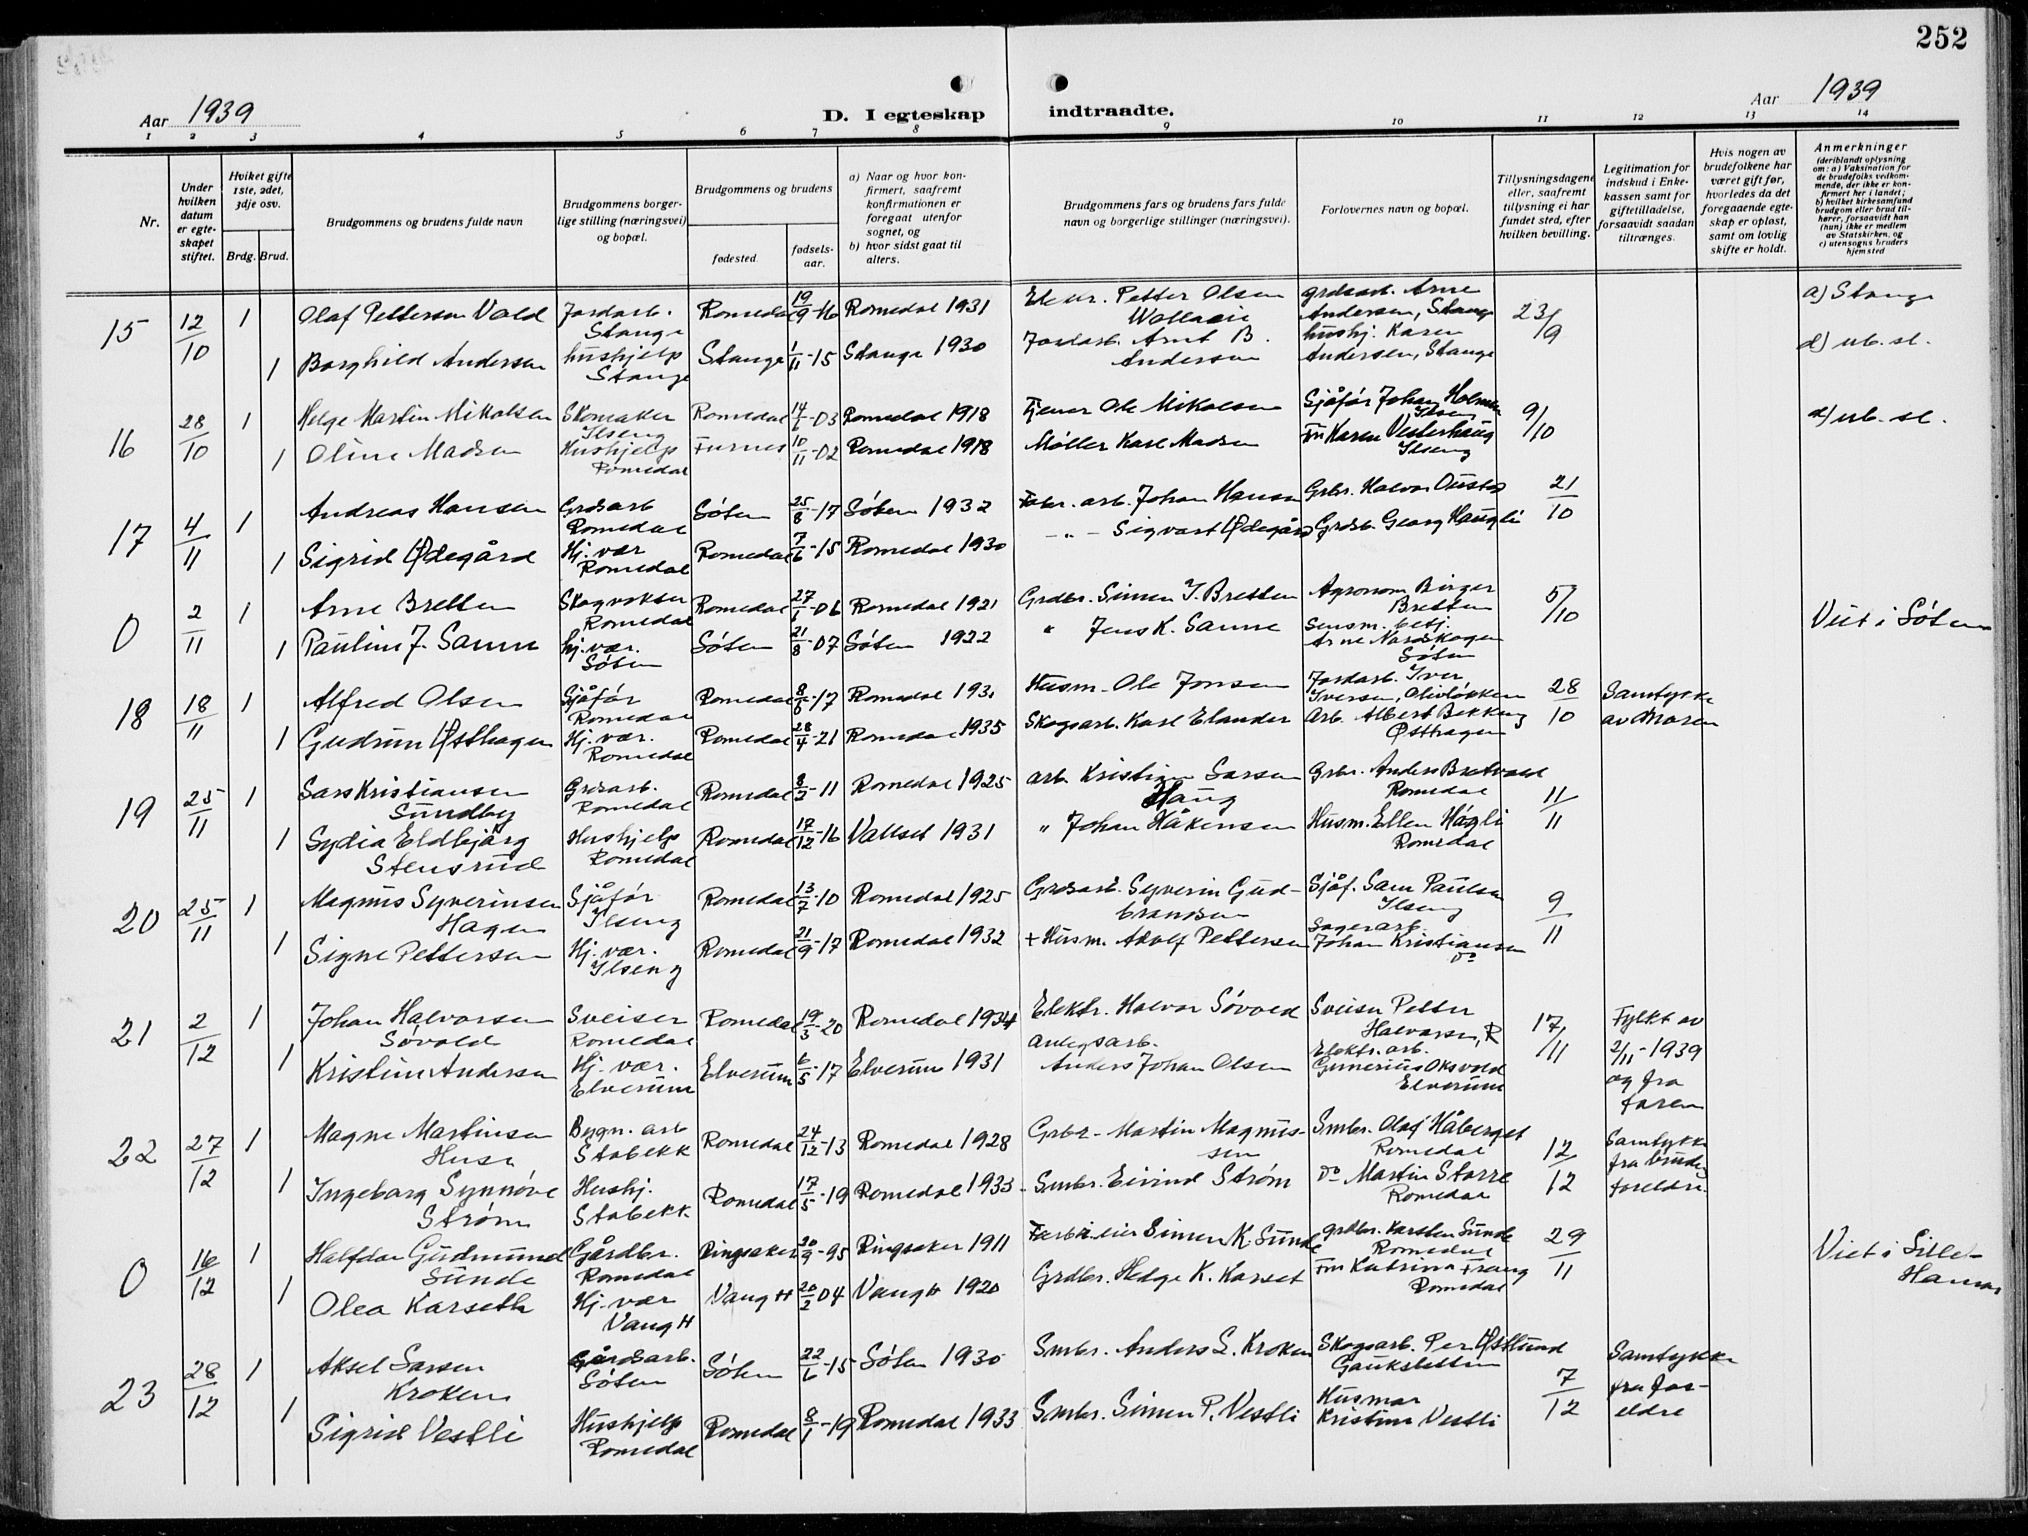 252
Aar 1939
D. I egteskap indtraadte.
Aar 1939
1 2 3 4 5 6 7 8 9 10 11 12 13 14
Nr.
Under hvilken datum er egteskapet stiftet.
Hvilket gifte 1ste, 2det, 3dje osv.
Brdg. Brud.
Brudgommens og brudens fulde navn
Brudgommens borgerlige stilling (næringsvei) og bopæl.
Brudgommens og brudens
fødested.
fødsels-aar.
a) Naar og hvor konfirmert, saafremt konfirmationen er foregaat utenfor sognet, og
b) hvor sidst gaat til alters.
Brudgommens fars og brudens fars fulde navn og borgerlige stillinger (næringsvei).
Forlovernes navn og bopæl.
Tillysningsdagene eller, saafremt tillysning ei har fundet sted, efter hvilken bevilling.
Legitimation for indskud i Enkekassen samt for giftetilladelse, forsaavidt saadan tiltrænges.
Hvis nogen av brudefolkene har været gift før, hvorledes da det foregaaende egteskap er opløst, samt om lovlig skifte er holdt.
Anmerkninger
(deriblandt oplysning om: a) Vaksination for de brudefolks vedkommende, der ikke er konfirmert her i landet; b) hvilket kirkesamfund brudgom eller brud tilhører, forsaavidt han (hun) ikke er medlem av Statskirken, og c) utensogns bruders hjemsted
15 12/10 1 Olaf Pettersen Vold Jordarb. Stange Romedal 19/9-16 Romedal 1931 Petter Olsen grdsarb. Arne Andersen, Stange 23/9 a) Stange
1 Borghild Andersen hushjelp Stange Stange 1/11-15 Stange 1930 Jordarb. Arnt B. Andersen hushj. Karen Andersen, Stange d) ub. sl.
16 28/10 1 Helge Martin Mikalsen Skomaker Ilseng Romedal 03 Romedal 1918 Ole Mikalsen Sjåför Johan Holmen Ilseng 9/10 d) ub. sl.
1 Oline Madsen Hushjelp Romedal Furnes 10/11-02 Romedal 1918 Møller Karl Madsen Fru Karen Vesterhaug Ilseng
17 4/11 1 Andreas Hansen Grdsarb Romedal Löten 25/8-17 Löten 1932 Fabr. arb. Johan Hansen Grbr. Halvor Ousta 21/10
1 Sigrid Ødegård Hj. vær Romedal Romedal 7/6-15 Romedal 1930 - " - Sigvart Ødegård Grdb. Georg Haugli
0 2/11 1 Arne Bretten Skogvokter Romedal Romedal 27/1-06 Romedal 1921 Grdbr. Simen J. Bretten Agronom Birger Bretten 5/10 Viet i Löten
1 Pauline J. Sanne hj. vær. Löten Löten 21/8-07 Löten 1922 " Jens K. Sanne Lensm. betj. Arne Nordskogen Löten
18 18/11 1 Alfred Olsen Sjåför Romedal Romedal 8/6-17 Romedal 1931 Husm. Ole Jonsen Jordarb. Iver Iversen, Olivlökken 28/10 Samtykke av moren
1 Gudrun Østhagen Hj. vær. Romedal Romedal 28/4-21 Romedal 1935 Skogsarb. Karl Elander Arb. Albert Bekkeng Østhagen
19 25/11 1 Lars Kristiansen Sundby Grdsarb. Romedal Romedal 11 Romedal 1925 arb. Kristian Larsen Haug Grbr. Anders Bretvold Romedal 11/11
1 Lydia Eldbjörg Stensrud Hushjelp Romedal Romedal 17/12-16 Vallset 1931 " Johan Håkensen Husm. Ellen Hågli Romedal
20 25/11 1 Magnus Syverinsen Hagen Sjåför Ilseng Romedal 13/7-10 Romedal 1925 Grdsarb. Syverin Gudbrandsen Sjåf. Sam Paulsen Ilseng 9/11
1 Signe Pettersen Hj. vær. Ilseng Romedal 21/9-17 Romedal 1932 + Husm. Adolf Pettersen Sagerarb. Johan Kristiansen do
21 2/12 1 Johan Halvorsen Sövold Sveiser Romedal Romedal 19/3-20 Romedal 1934 Elektr. Halvor Sövold Sveiser Petter Halvorsen, R 17/11 Fylkt av 2/11-1939 og fra faren
1 Kristine Andersen Hj. vær. Elverum Elverum 6/5-17 Elverum 1931 anlegsarb. Anders Johan Olsen Elektr. arb. Gunerius Oksvold Elverum
22 27/12 1 Magne Martinsen Huse Bygn. arb Stabekk Romedal 24/12-13 Romedal 1928 Grbr. Martin Magnussen Smbr. Olaf Håberget Romedal 12/12 Samtykke fra brudens foreldre.
1 Ingeborg Synnöve Ström Hushj. Stabekk Romedal 17/5-19 Romedal 1933 Smbr. Eivind Ström do Martin Storre Romedal
0 16/12 1 Halfdan Gudmund Sunde Gårdbr. Romedal Ringsaker 20/9-95 Ringsaker 1911 Simen K. Sunde grdbr. Karsten Sunde Romedal 29/11 Viet i Lille-Hamar
1 Olea Karseth Hj. vær Vang H Vang H 20/2 04 Vang H 1920 Grdbr. Helge K. Karset Fru Katrina Frang Romedal
23 28/12 1 Aksel Larsen Kroken Gårdsarb. Löten Löten 22/6-15 Löten 1930 Smbr. Anders L. Kroken Skogsarb. Per Østlund Gaukstetten 7/12 Samtykke fra foreldre
1 Sigrid Vestli Hushjelp Romedal Romedal 8/1-19 Romedal 1933 Smbr. Simen P. Vestli Husmor Kristine Vestli